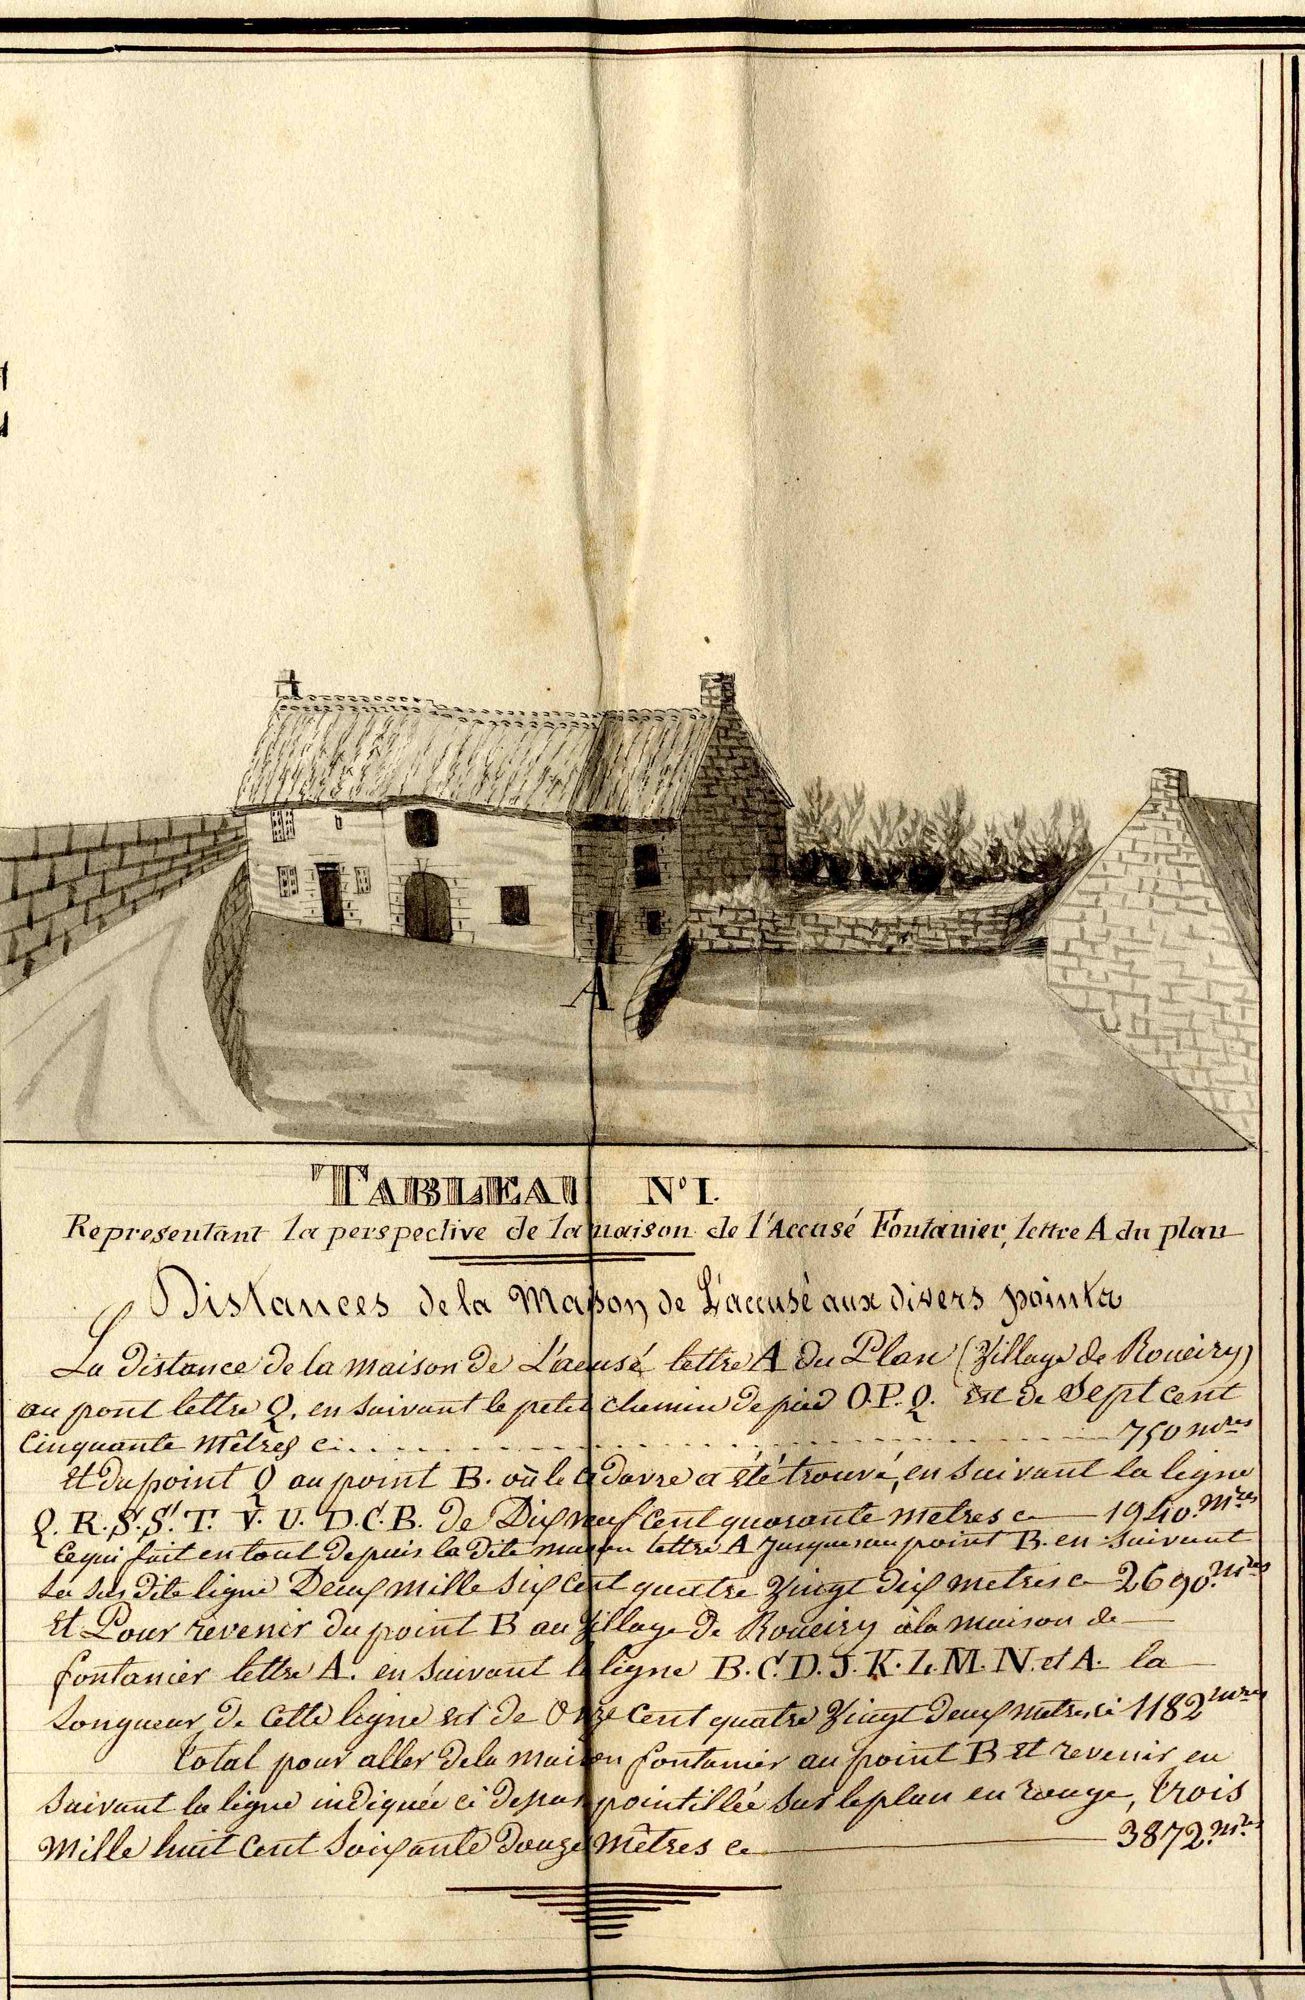 A
TABLEAU N° I.
Representant la perspective de la maison de l'Accusé Fontanier, lettre A du plan
Distances de la Maison de L'accusé aux divers points
La distance de la maison de L'acusé lettre A du Plan (Village de Roueiry)
au pont lettre Q. en suivant le petit chemin de pied O.P.Q. Est de Sept cent
Cinquante Mêtres ci . . . . . . . . . . 750 mres
Et du point Q au point B. où le cadavre a été trouvé, en suivant la ligne
Q. R. S. S'. T. V. U. D. C. B. de Dix neuf cent quarante metres ci 1940. mres
Ce qui fait en tout depuis la dite maison lettre A jusques au point B. en suivant
la sus dite ligne Deux mille six cent quatre vingt dix metres ci 2690. mres
Et Pour revenir du point B au Village de Roueiry à la maison de
fontanier lettre A. en suivant la ligne B. C. D. J. K. L. M. N. et A. la
Longueur de cette ligne est de Onze cent quatre vingt deux metres ci 1182 mres
Total pour aller de la maison fontanier au point B Et revenir en
suivant la ligne indiquée ci dessus pointillée sur le plan en rouge, trois
Mille huit cent soixante douze mêtres ci 3872. mres